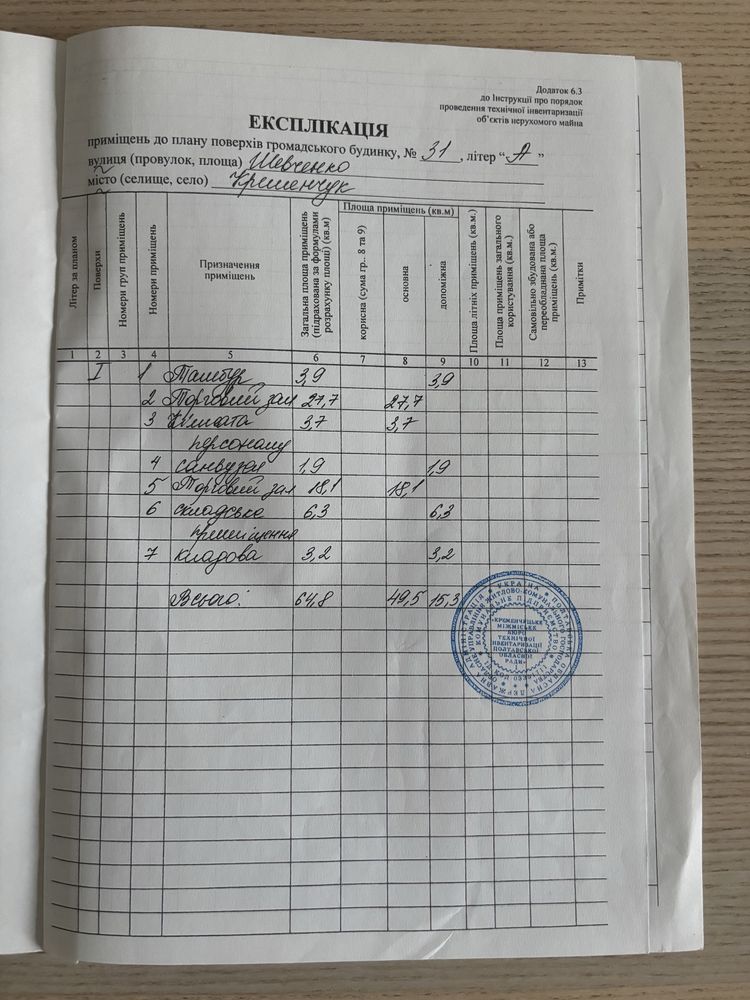 Додаток 6.3
до Інструкції про порядок
проведення технічної інвентаризації
об'єктів нерухомого майна
ЕКСПЛІКАЦІЯ
приміщень до плану поверхів громадського будинку, № 31, літер “А”
вулиця (провулок, площа) Шевченко
місто (селище, село) Кременчук
Літер за планом
Поверхи
Номери груп приміщень
Номери приміщень
Призначення приміщень
Загальна площа приміщень (підрахована за формулами розрахунку площі) (кв.м)
Площа приміщень (кв.м)
корисна (сума гр.. 8 та 9)
основна
допоміжна
Площа літніх приміщень (кв.м.)
Площа приміщень загального користування (кв.м.)
Самовільно збудована або переобладнана площа приміщень (кв.м.)
Примітки
1 2 3 4 5 6 7 8 9 10 11 12 13
I 1 Тамбур 3,9 3,9
2 Торговий зал 27,7 27,7
3 Кімната 3,7 3,7
персоналу
4 санвузол 1,9 1,9
5 Торговий зал 18,1 18,1
6 складське 6,3 6,3
приміщення
7 кладова 3,2 3,2
Всього: 64,8 49,5 15,3
УКРАЇНА * ПОЛТАВСЬКА ОБЛАСНА ДЕРЖАВНА АДМІНІСТРАЦІЯ
УПРАВЛІННЯ ЖИТЛОВО-КОМУНАЛЬНОГО ГОСПОДАРСТВА
КОМУНАЛЬНЕ ПІДПРИЄМСТВО
«КРЕМЕНЧУЦЬКЕ
МІЖМІСЬКЕ
БЮРО
ТЕХНІЧНОЇ
ІНВЕНТАРИЗАЦІЇ
ПОЛТАВСЬКОЇ
ОБЛАСНОЇ
РАДИ»